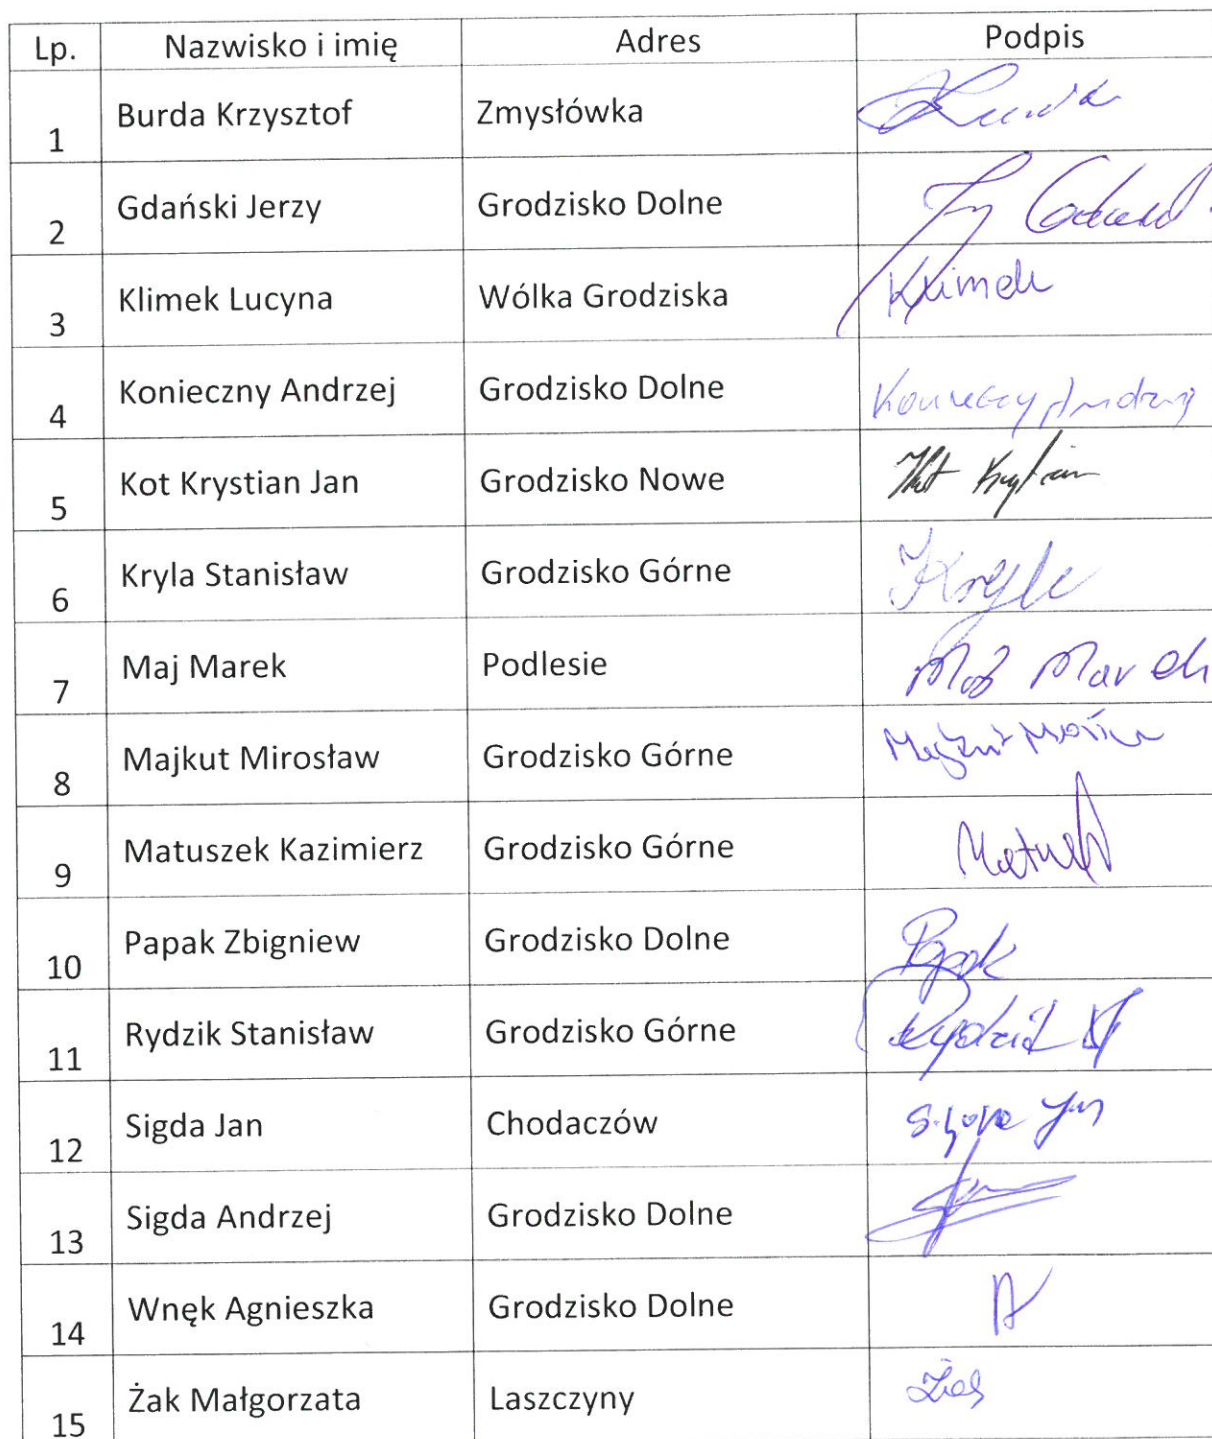 Lp. Nazwisko i imię Adres Podpis
1 Burda Krzysztof Zmysłówka
2 Gdański Jerzy Grodzisko Dolne
3 Klimek Lucyna Wólka Grodziska Klimek
4 Konieczny Andrzej Grodzisko Dolne
5 Kot Krystian Jan Grodzisko Nowe Kot Krystian
6 Kryla Stanisław Grodzisko Górne Kryla
7 Maj Marek Podlesie Maj Marek
8 Majkut Mirosław Grodzisko Górne Majkut
9 Matuszek Kazimierz Grodzisko Górne
10 Papak Zbigniew Grodzisko Dolne Papak
11 Rydzik Stanisław Grodzisko Górne Rydzik
12 Sigda Jan Chodaczów Sigda Jan
13 Sigda Andrzej Grodzisko Dolne
14 Wnęk Agnieszka Grodzisko Dolne
15 Żak Małgorzata Laszczyny Żak